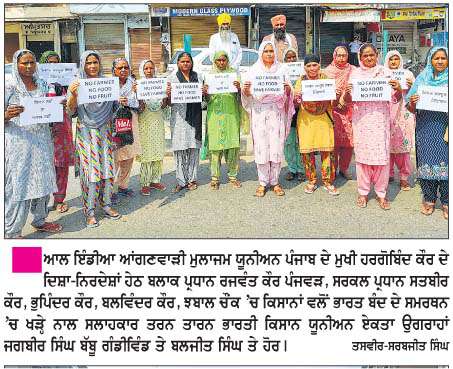 MODERN GLASS PLYWOOD
NO FARMER
NO FOOD
NO FRUIT
NO FARMER
NO FOOD
SAVE FARMER
NO FARMER
NO FOOD
SAVE FARMER
NO FARMER
NO FOOD
NO FRUIT
ਆਲ ਇੰਡੀਆ ਆਂਗਣਵਾੜੀ ਮੁਲਾਜਮ ਯੂਨੀਅਨ ਪੰਜਾਬ ਦੇ ਮੁਖੀ ਹਰਗੋਬਿੰਦ ਕੌਰ ਦੇ
ਦਿਸ਼ਾ-ਨਿਰਦੇਸ਼ਾਂ ਹੇਠ ਬਲਾਕ ਪ੍ਰਧਾਨ ਰਜਵੰਤ ਕੌਰ ਪੰਜਵੜ, ਸਰਕਲ ਪ੍ਰਧਾਨ ਸਤਬੀਰ
ਕੌਰ, ਭੁਪਿੰਦਰ ਕੌਰ, ਬਲਵਿੰਦਰ ਕੌਰ, ਝਬਾਲ ਚੌਂਕ 'ਚ ਕਿਸਾਨਾਂ ਵਲੋਂ ਭਾਰਤ ਬੰਦ ਦੇ ਸਮਰਥਨ
'ਚ ਖੜ੍ਹੇ ਨਾਲ ਸਲਾਹਕਾਰ ਤਰਨ ਤਾਰਨ ਭਾਰਤੀ ਕਿਸਾਨ ਯੂਨੀਅਨ ਏਕਤਾ ਉਗਰਾਹਾਂ
ਜਗਬੀਰ ਸਿੰਘ ਬੱਬੂ ਗੰਡੀਵਿੰਡ ਤੇ ਬਲਜੀਤ ਸਿੰਘ ਤੇ ਹੋਰ। ਤਸਵੀਰ-ਸਰਬਜੀਤ ਸਿੰਘ